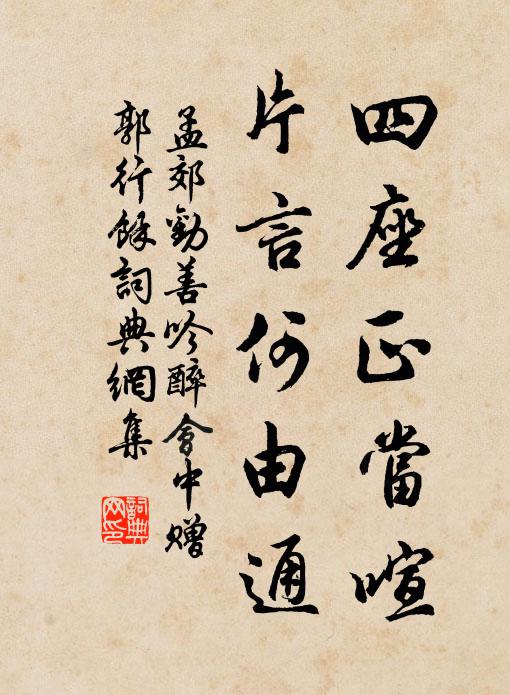 四座正當喧
片言何由通
孟郊勸善吟醉會中贈
郭行餘詞典網集
詞典網印